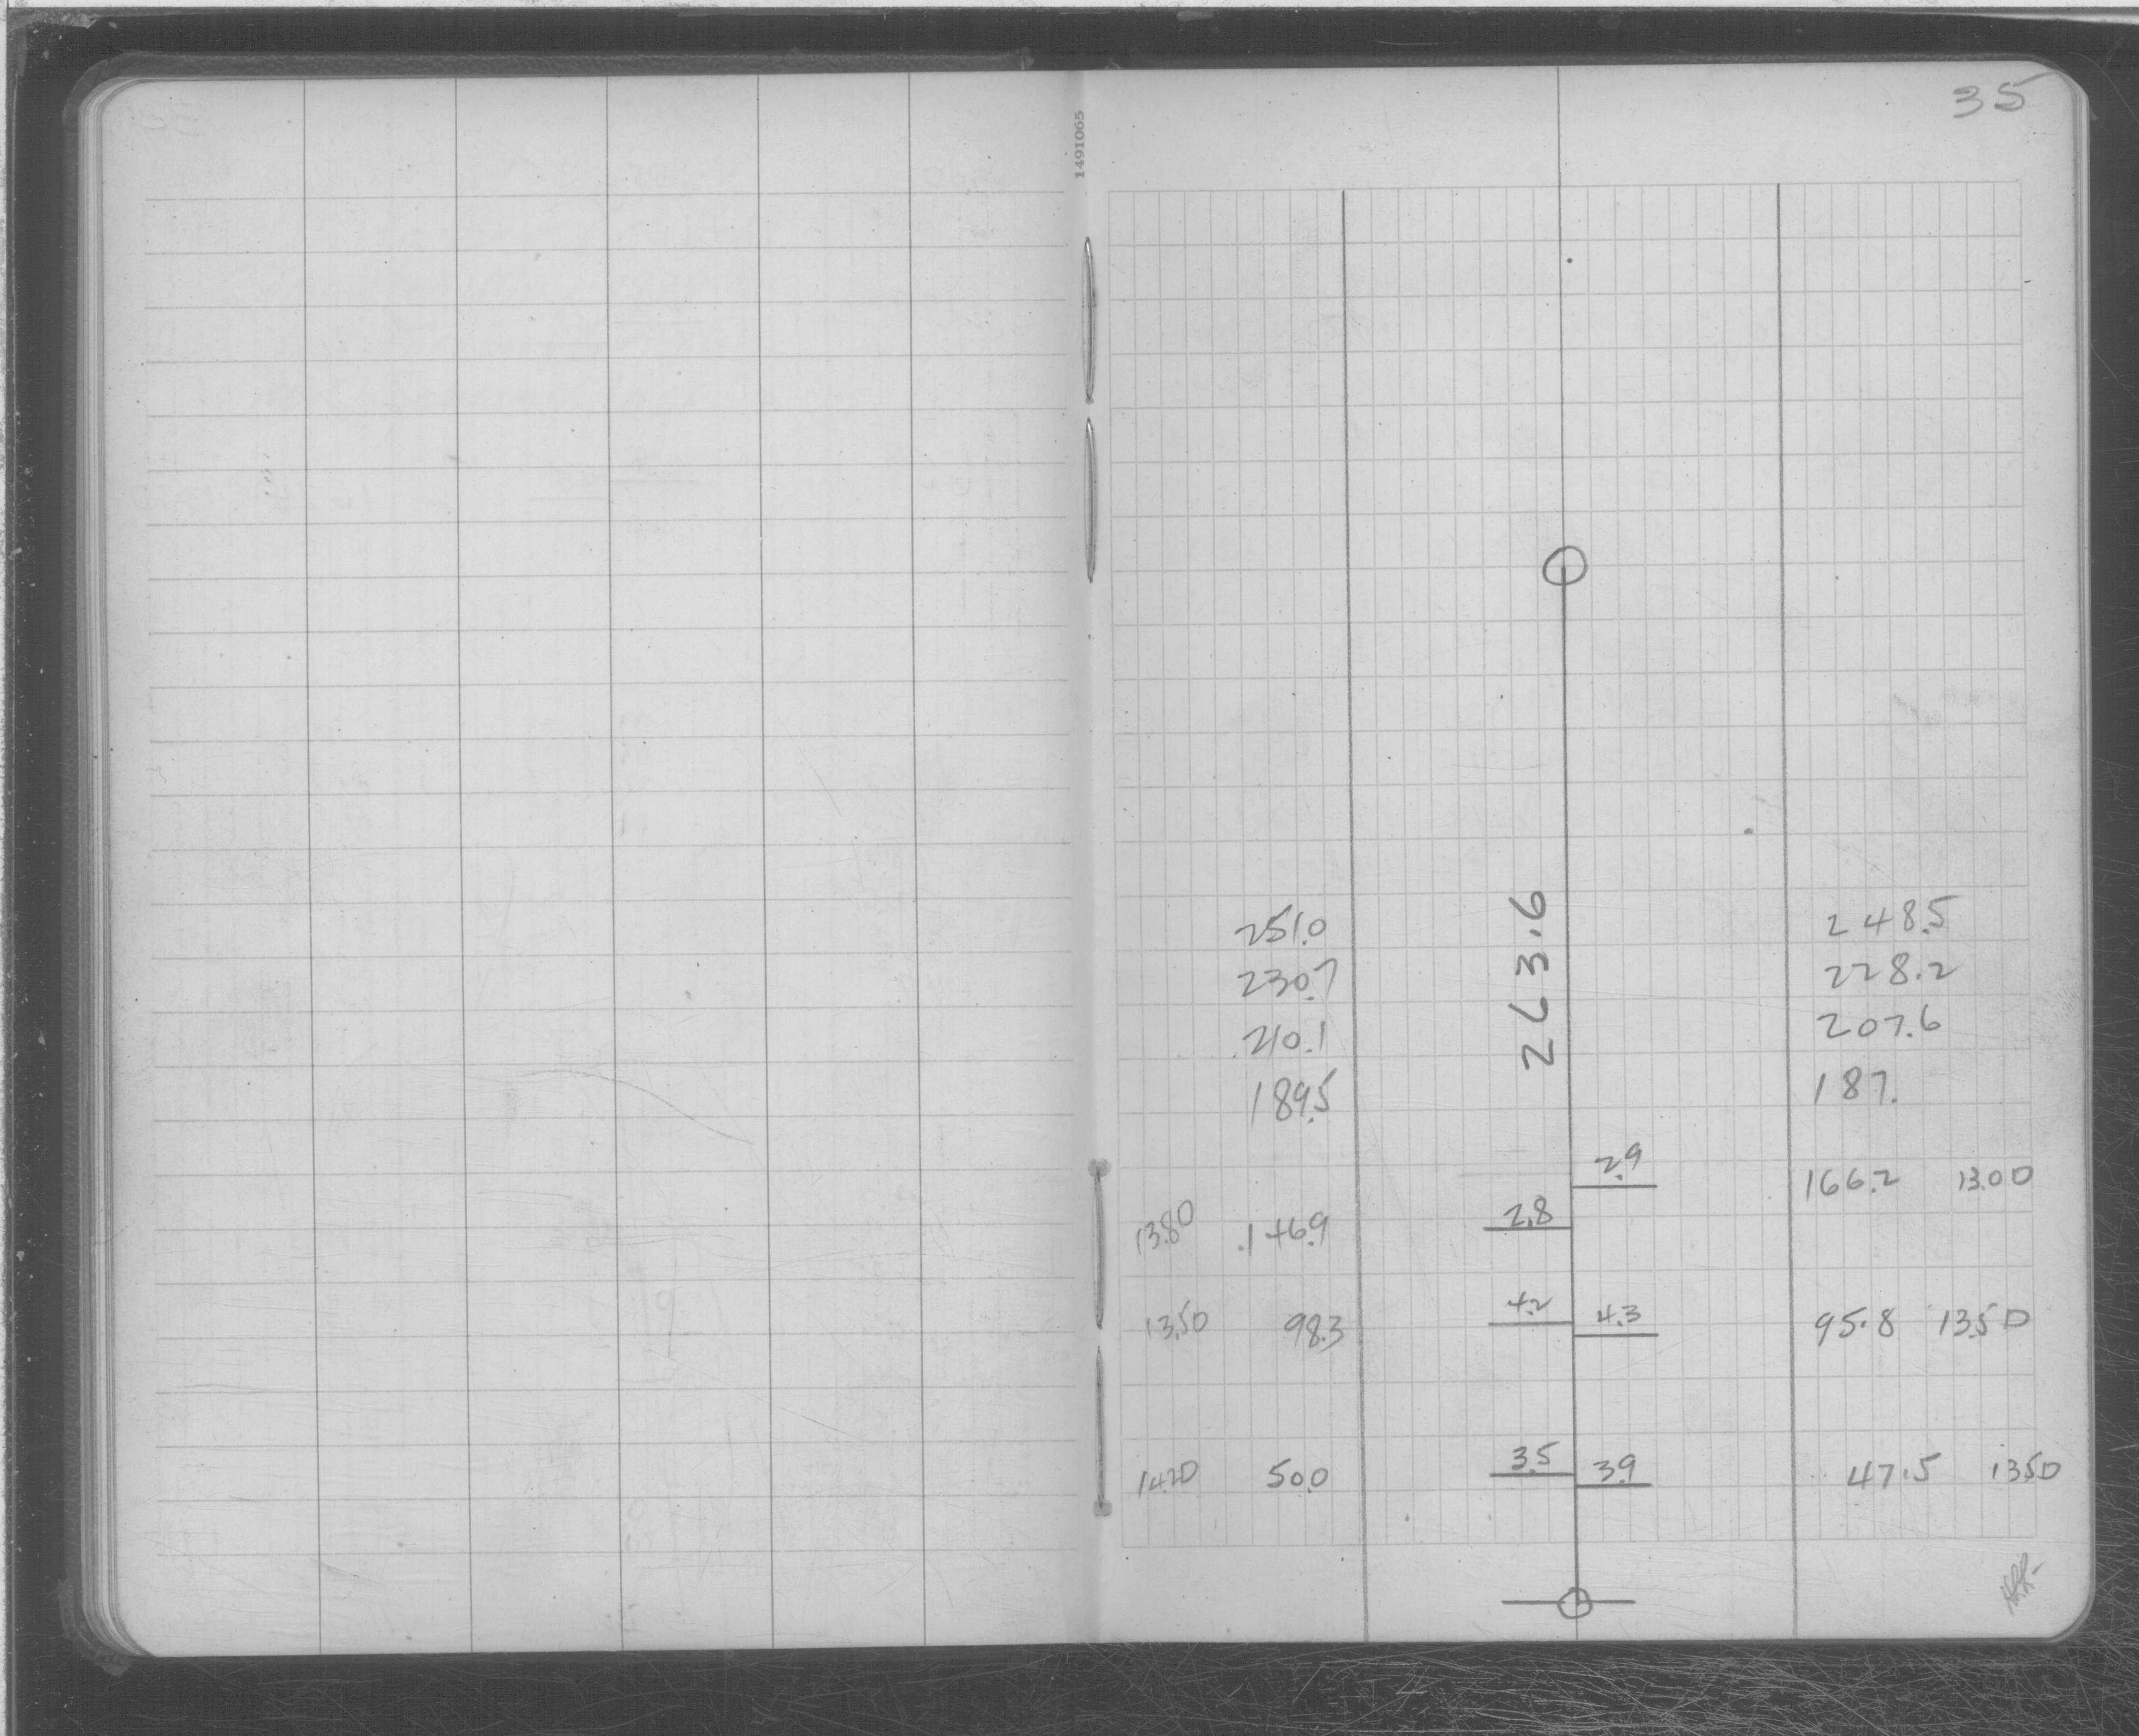 35
1491065
251.0 248.5
230.7 228.2
263.6
210.1 207.6
189.5 187.
2.9 166.2 13.0D
13.8D 146.9 2.8
13.5D 98.3 4.2 4.3 95.8 13.5D
14.2D 50.0 3.5 3.9 47.5 13.5D